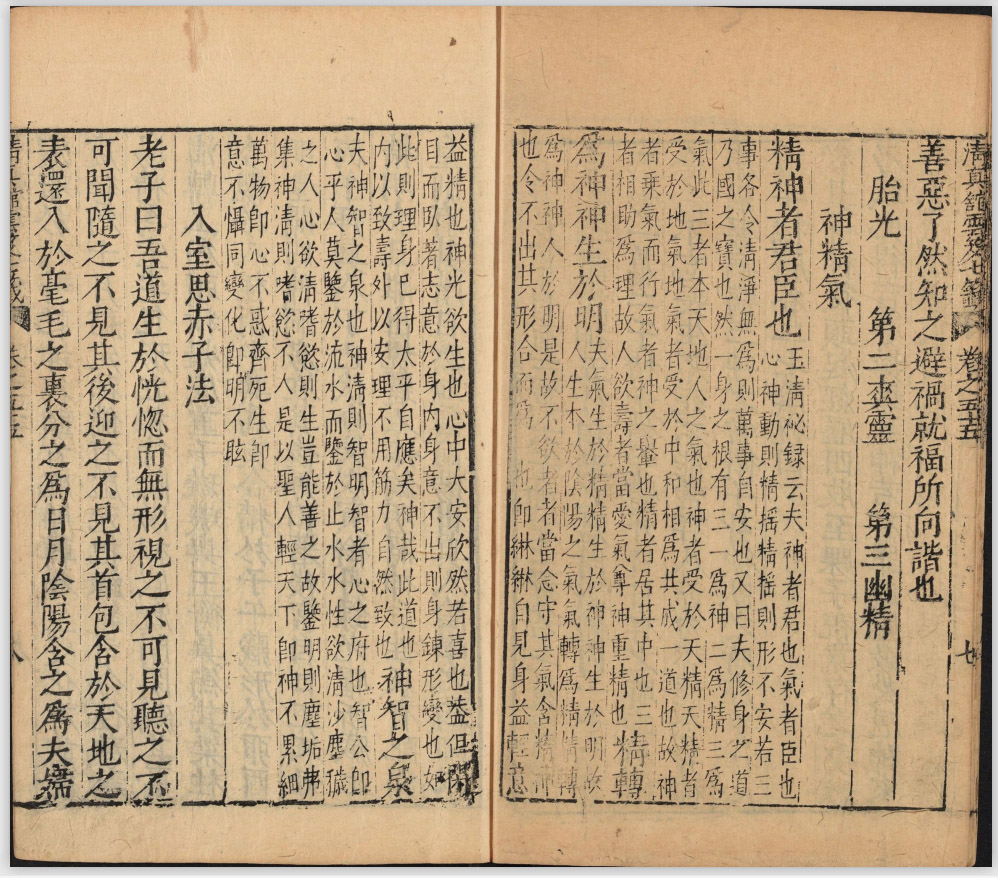 清真館雲笈七籤 卷之五十五 七
善惡了然知之避禍就福所向諧也
胎光 第二爽靈 第三幽精
神精氣
精神者君臣也
玉清祕録云夫神者君也氣者臣也
心神動則精摇精摇則形不安若三
事各令清淨無為則萬事自安也又曰夫修身之道
乃國之寶也然一身之根有三一為神二為精三為
氣此三者本天地人之氣也神者受於天精天精者
受於地氣氣者受於中和相為共成一道也故神
者乘氣而行氣者神之轝也精者居其中也三
者相助爲理故人欲壽者當愛氣尊神重精也
精轉
爲神神生於明
夫氣生於精精生於神神生於明故
人生本於陰陽之氣氣轉爲精精轉
爲神神人於明是故不欲老者當念守其氣含精神
也令不出其形合而爲 也即綝綝自見身益輕意
益精也神光欲生也心中大安欣然若喜也益但閉
目而臥著志意於身内身意不出則身鍊形變也如
此則理身已得太平自應矣神哉此道也
内以致壽外以安理不用筋力自然致也
神智之泉
夫神智之泉也神清則智明智者心之府也智公卽
心乎人莫鑒於流水而鑒於止水水性欲清沙塵穢
之人心欲清嗜慾則生豈能善之故鑒明則塵垢弗
集神清則嗜慾不人是以聖人輕天下卽神不累細
萬物卽心不惑齊死生卽
意不懾同變化卽明不眩
入室思赤子法
老子曰吾道生於恍惚而無形視之不可見聽之不
可聞隨之不見其後迎之不見其首包含於天地之
表還入於毫毛之裏分之爲日月陰陽含之爲夫婦
卷之五十五 八